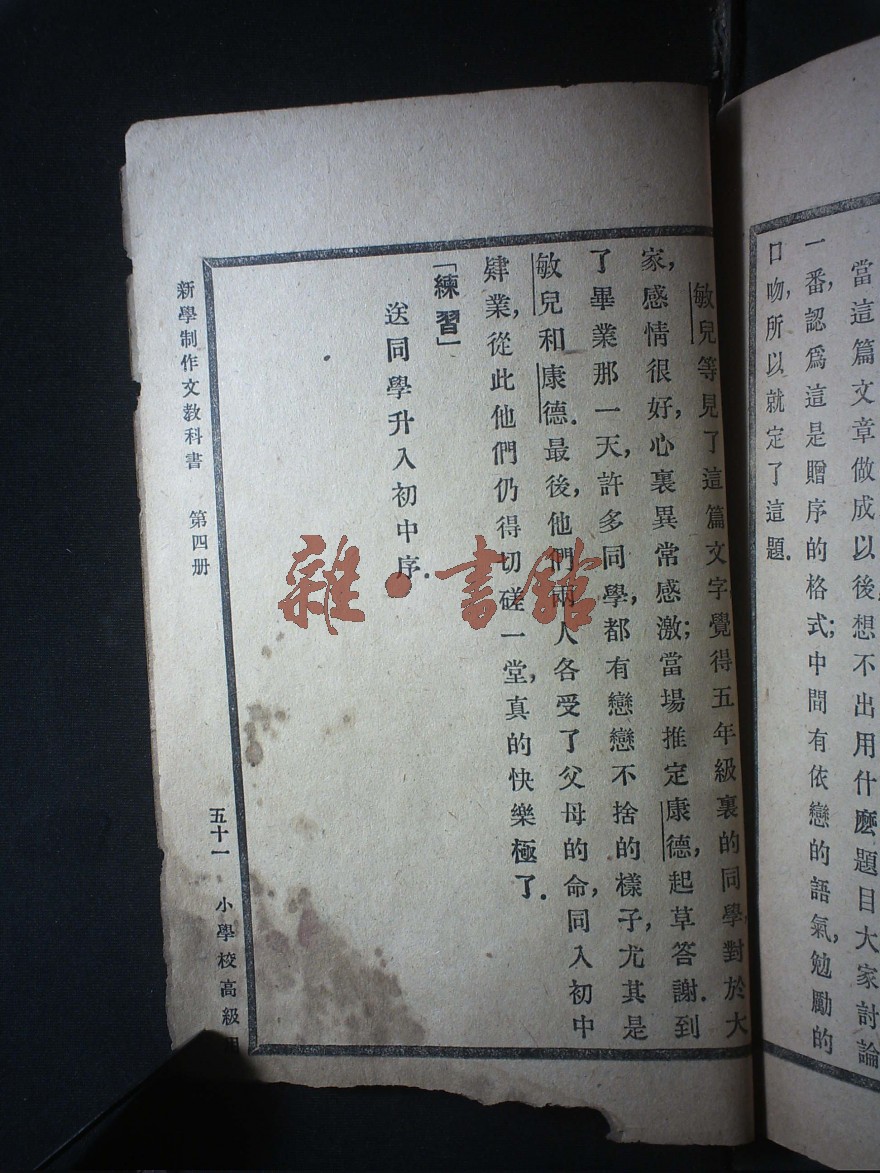 當這篇文章做成以後,想不出用什麼題目大家討論
一番,認爲這是贈序的格式;中間有依戀的語氣,勉勵的
口吻,所以就定了這題.
敏兒等見了這篇文字,覺得五年級裏的同學,對於大
家,感情很好,心裏異常感激;當場推定康德,起草答謝.到
了畢業那一天,許多同學,都有戀戀不捨的樣子,尤其是
敏兒和康德.最後,他們兩人各受了父母的命,同入初中
肄業,從此他們仍得切磋一堂,真的快樂極了.
「練習」
送同學升入初中序.
新學制作文教科書 第四册 五十一 小學校高級用
雜·書館